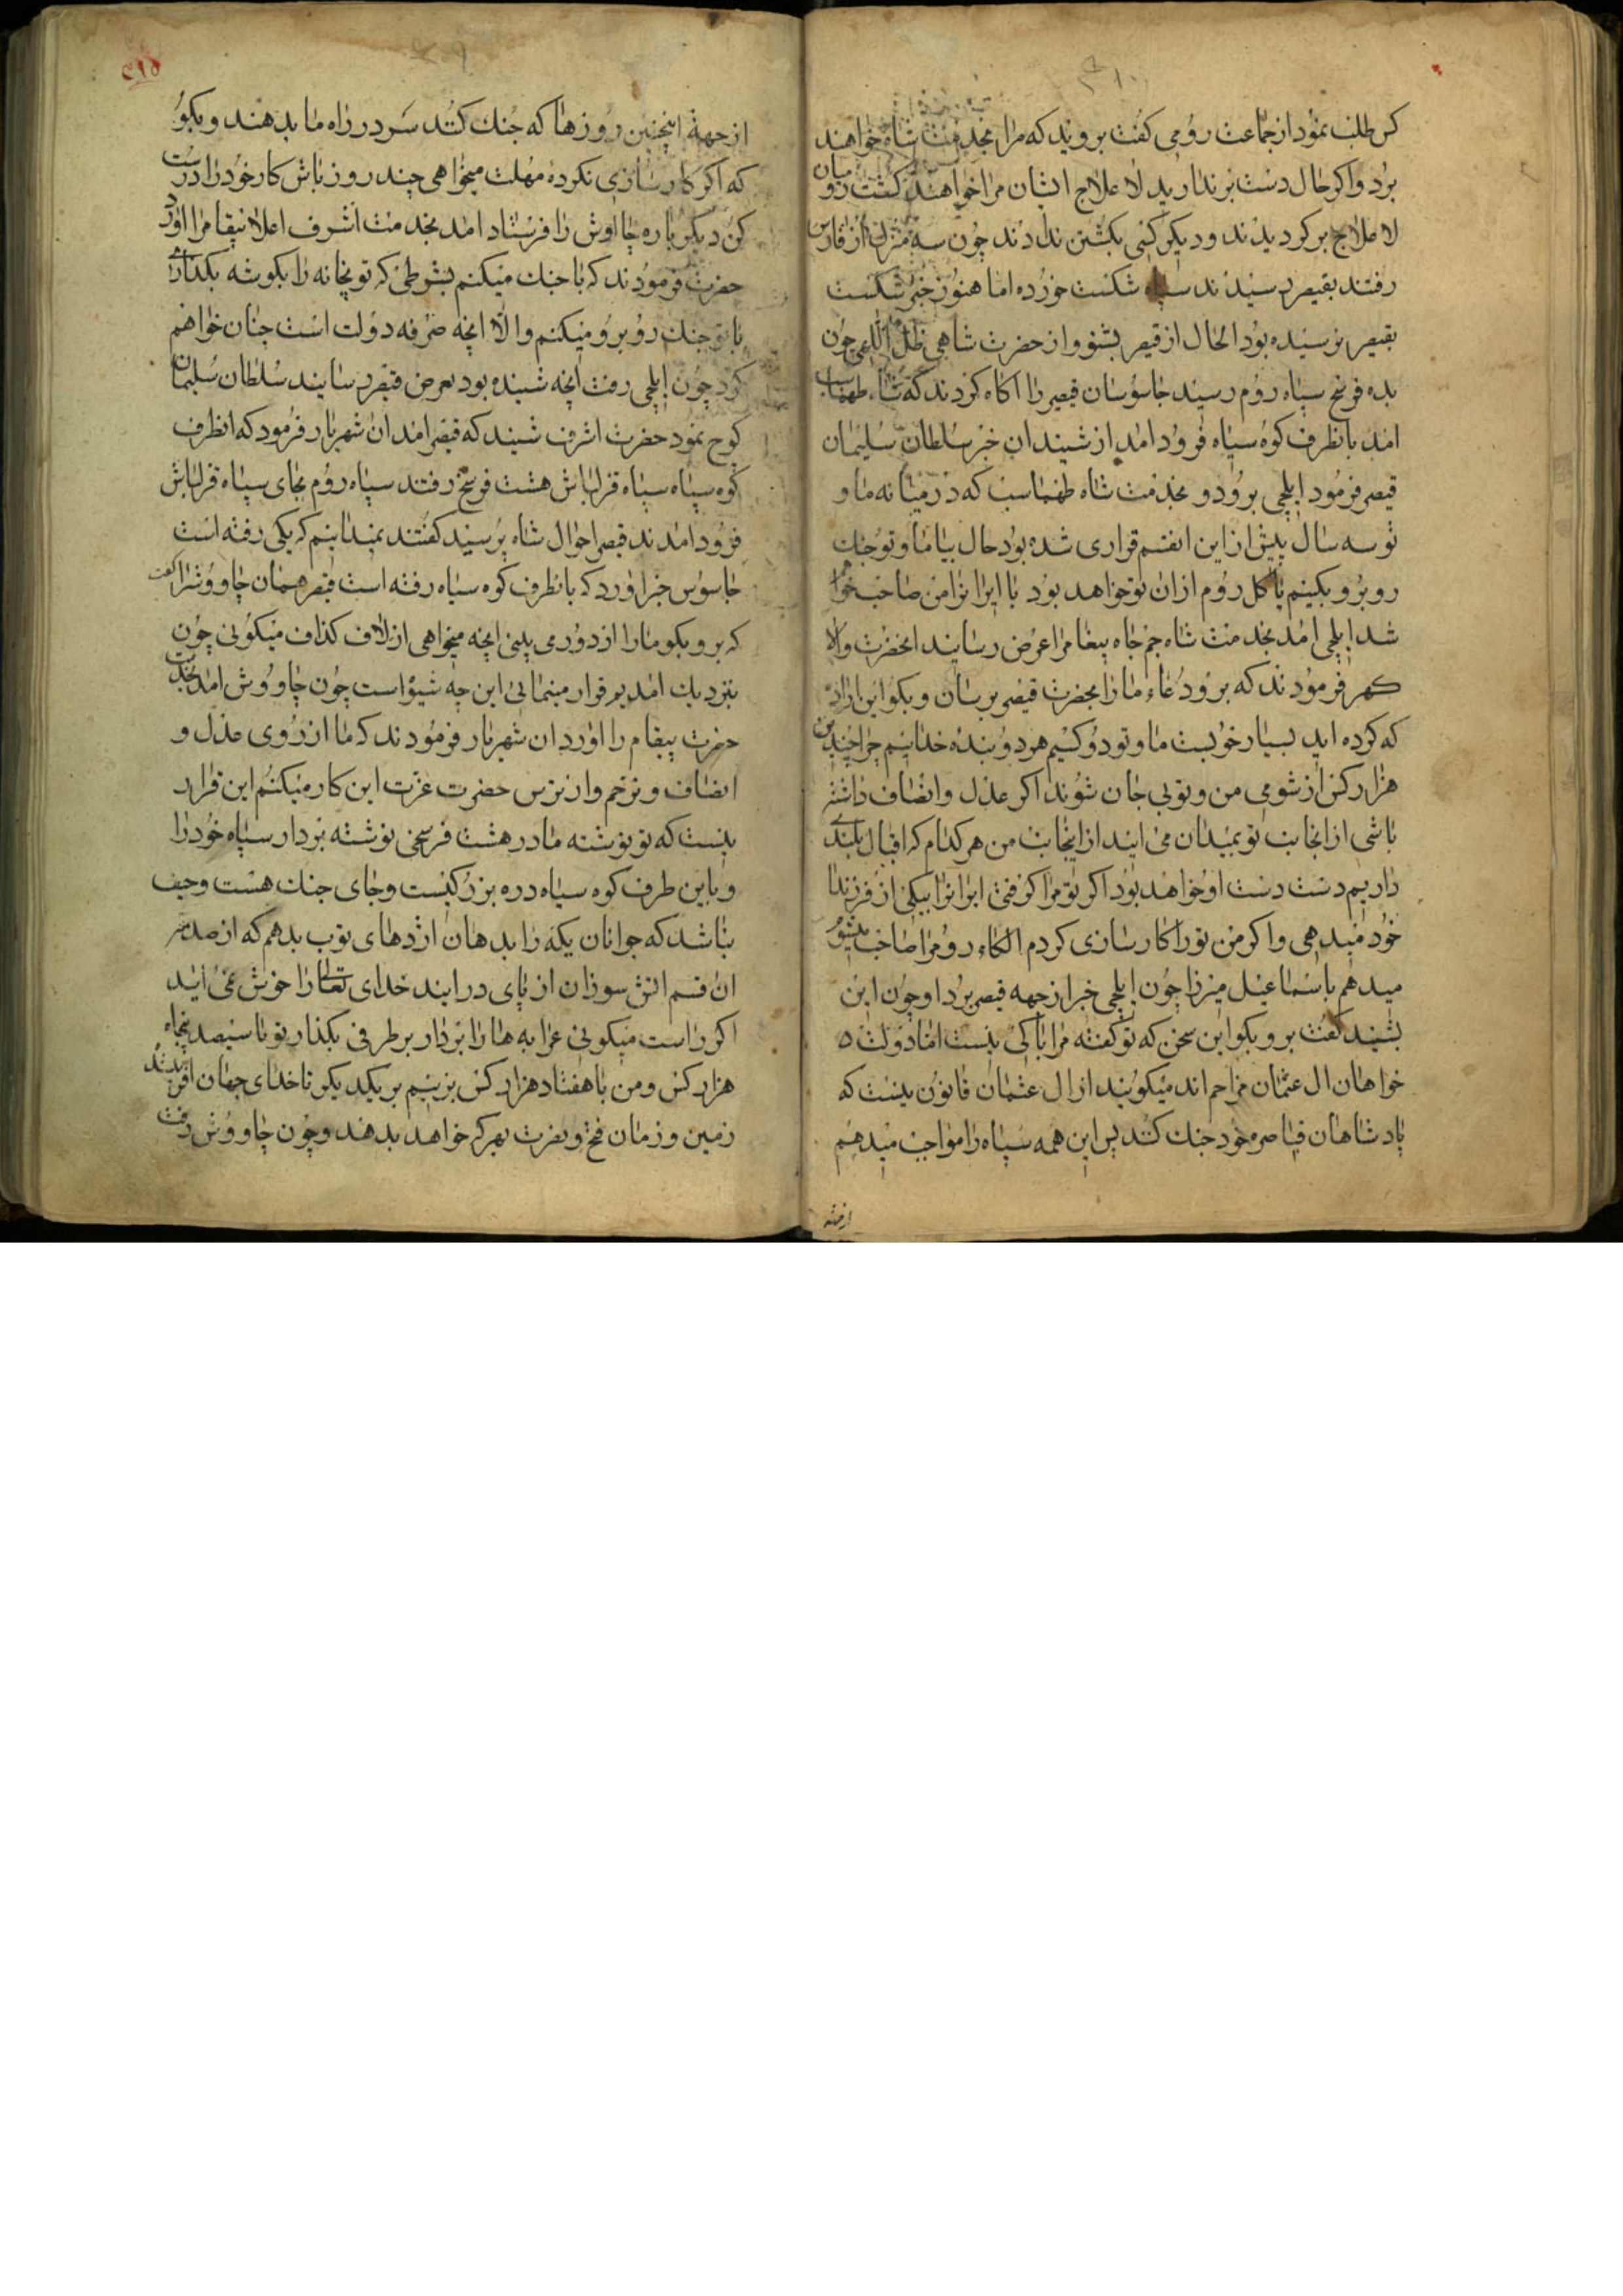 کس طلب نمود از جماعت رومی کفت بروید که مرا بخدمت شاه خواهند
برد واکر حال دست برندارید لا علاج ایشان مرا خواهند کشت رومیان
لا علاج برکردیدند ودیکر کسی بکشتن ندادند چون سه منزل از فارس
رفتند بقیصر رسیدند سپاه شکست خورده اما هنوز خبر شکست
بقیصر نرسیده بود الحال از قیصر بشنو واز حضرت شاهی ظل اللهی چون
بده فرسخ سپاه روم رسید جاسوسان قیصر را اکاه کردند که شاه طهماسب
امد بانطرف کوه سیاه فرود امد از شنیدن ان خبر سلطان سلیمان
قیصر فرمود ایلچی برود و بخدمت شاه طهماسب که در میانه ما و
تو سه سال پیش از این اینقسم قراری شده بود حال بیا ما و تو جنک
روبرو بکنیم یا کل روم از ان تو خواهد بود یا ایرانرا من صاحب خوا
شد ایلچی امد بخدمت شاه جم جاه پیغامرا عرض رسانید انحضرت والا
کهر فرمودند که برو دعاء ما را بحضرت قیصر برسان وبکو این اراده
که کرده اید بسیار خوبست ما و تو دو کسیم هر دو بنده خدائیم چرا چندین
هزار کس از شومی من و تو بی جان شوند اکر عدل وانصاف داشته
باشی از انجانب تو بمیدان می ایند از اینجانب من هر کدام که اقبال بلندی
داریم دست دست او خواهد بود اکر تو مرا کرفتی ایرانرا بیکی از فرزندان
خود میدهی واکر من تو را کارسازی کردم الکاء رومرا صاحب میشوم
میدهم باسماعیل میرزا چون ایلچی خبر از جهه قیصر برد او چون این
بشنید کفت برو بکو این سخن که تو کفته مرا باکی نیست اما دولت ه
خواهان ال عثمان مزاحم اند میکویند از ال عثمان قانون نیست که
پادشاهان قیاصره خود جنک کنند پس این همه سپاه را مواجب میدهیم
از جهة
از جهة اینچنین روزها که جنک کنند سر در راه ما بدهند وبکو
که اکر کارسازی نکرده مهلت میخواهی چند روز باش کار خود را درست
کن دیکر باره چااوش را فرستاد امد بخدمت اشرف اعلا پیغامرا اورد
حضرت فرمودند که با جنک میکنم بشرطی که توپخانه را بکوشه بکذاری
با تو جنک روبرو میکنم والا انچه صرفه دولت است چنان خواهم
کرد چون ایلچی رفت انچه شنیده بود بعرض قیصر رسانید سلطان سلیمان
کوچ نمود حضرت اشرف شنید که قیصر امد ان شهریار فرمود که انطرف
کوه سیاه سپاه قزلباش هشت فرسخ رفتند سپاه روم بجای سپاه قزلباش
فرود امدند قیصر احوال شاه پرسید کفتند نمیدانیم که یکی رفته است
جاسوس خبر اورد که بانطرف کوه سیاه رفته است قیصر همان چاووشرا کفت
که برو بکو ما را از دور می بینی انچه میخواهی از لاف کذاف میکوئی چون
بنزدیک امدیم فرار مینمائی این چه شیوا است چون چاووش امد بخدمت
حضرت پیغام را اورد ان شهریار فرمودند که ما از روی عدل و
انصاف وترحم واز ترس حضرت عزت این کار میکنم این قرار
نیست که تو نوشته ما در هشت فرسخی نوشته بردار سپاه خود را
و باین طرف کوه سیاه دره بزرکیست وجای جنک هست وحیف
باشد که جوانان یکه را بدهان اژدهای توپ بدهم که از صدمه
ان قسم اتش سوزان از پای در ایند خدای تعالی را خوش نمی اید
اکر راست میکوئی عرابه ها را بردار بر طرفی بکذار تو با سیصد پنجاه
هزار کس و من با هفتاد هزار کس بزنیم بر یکدیکر تا خدای جهان افریننده
زمین و زمان فتح ونصرت بهرکه خواهد بدهد وچون چاووش رفت